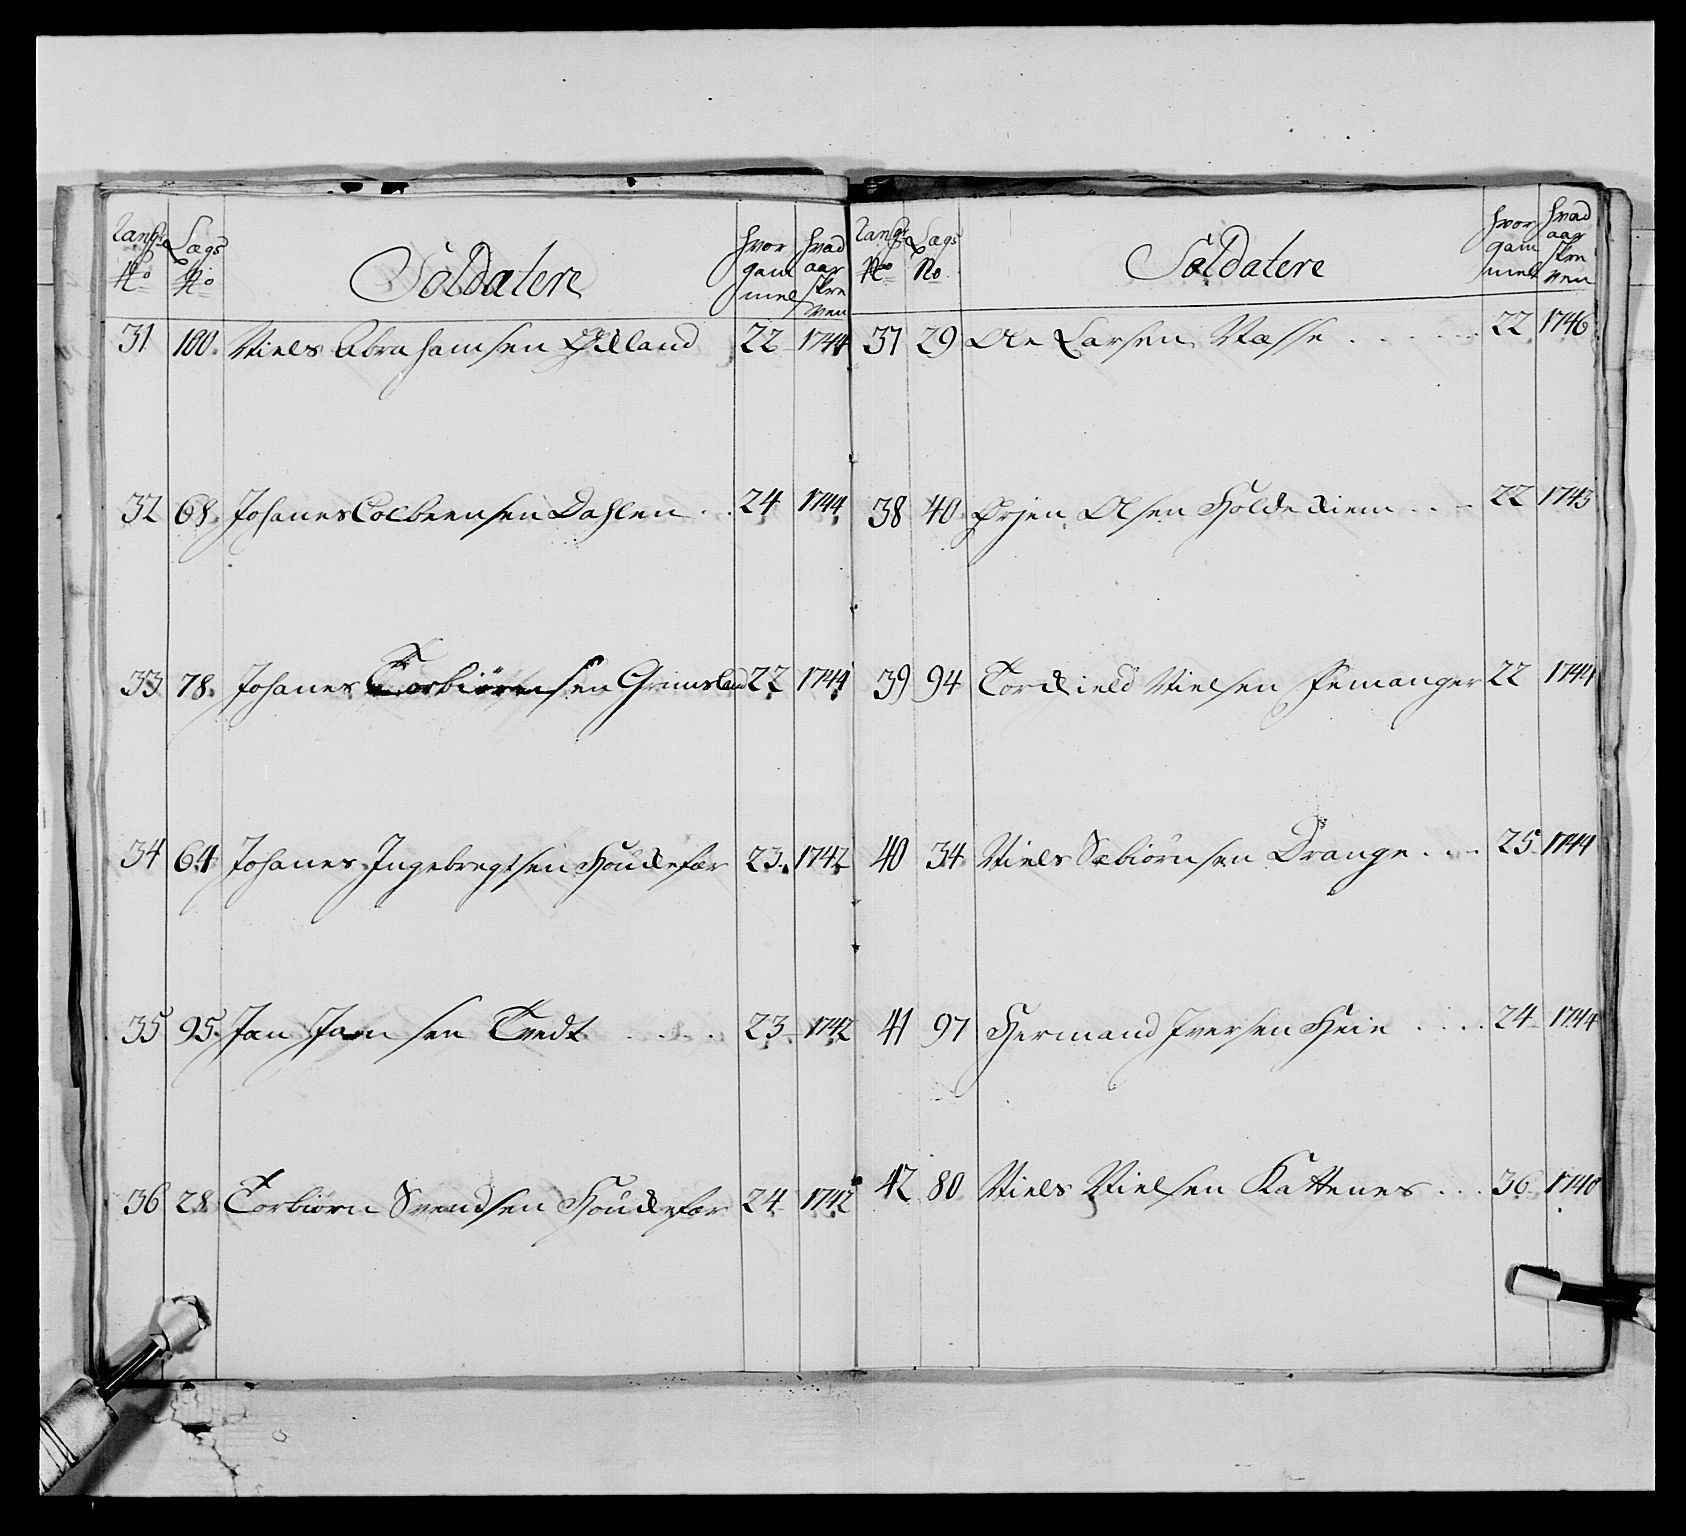 Rangs No
Lægs No
Soldatere
hvor gammel
hvad aar skreven
31 100. Niels Abrahamsen Ødland 22 1744
32 68. Johanes Colbeensen Dahlen . . 24 1744
33 78. Johanes Torbiørensen Grimsland 22 1744
34 64 Johanes Ingebregtsen Houckefær 23. 1742
35 95. Jan Jansen Tvedt . . . . 23 1742
36 28 Torbiørn Svendsen Houckefær 24 1742
Rangs No
Lægs No.
Soldatere
hvor gammel
hvad aar skreven
37 29 Ole Larsen Næsse . . . . . 22 1746
38 40 Ørjen Olsen Holdekiem . . . 22 1743
39 94 Torkield Nielsen Femanger 22 1744
40 34 Niels Sæbiørnsen Drange . . . 25 1744
41 97 Hermand Iversen Heie . . . . 24 1744
42 80 Niels Nielsen Kattenes . . . 36 1740